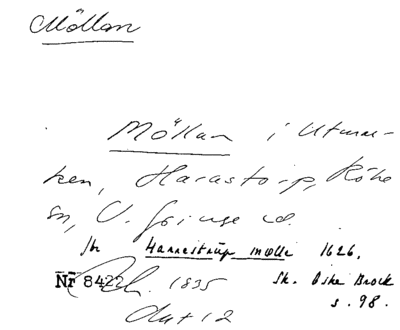 Möllan
Möllan i Utmar-
ken, Harastorp, Röke
sn, V. Göinge hd.
Jfr Hannestrup mølle 1626,
Nr 8422 1835 Sk. Øster Brock
s. 98.